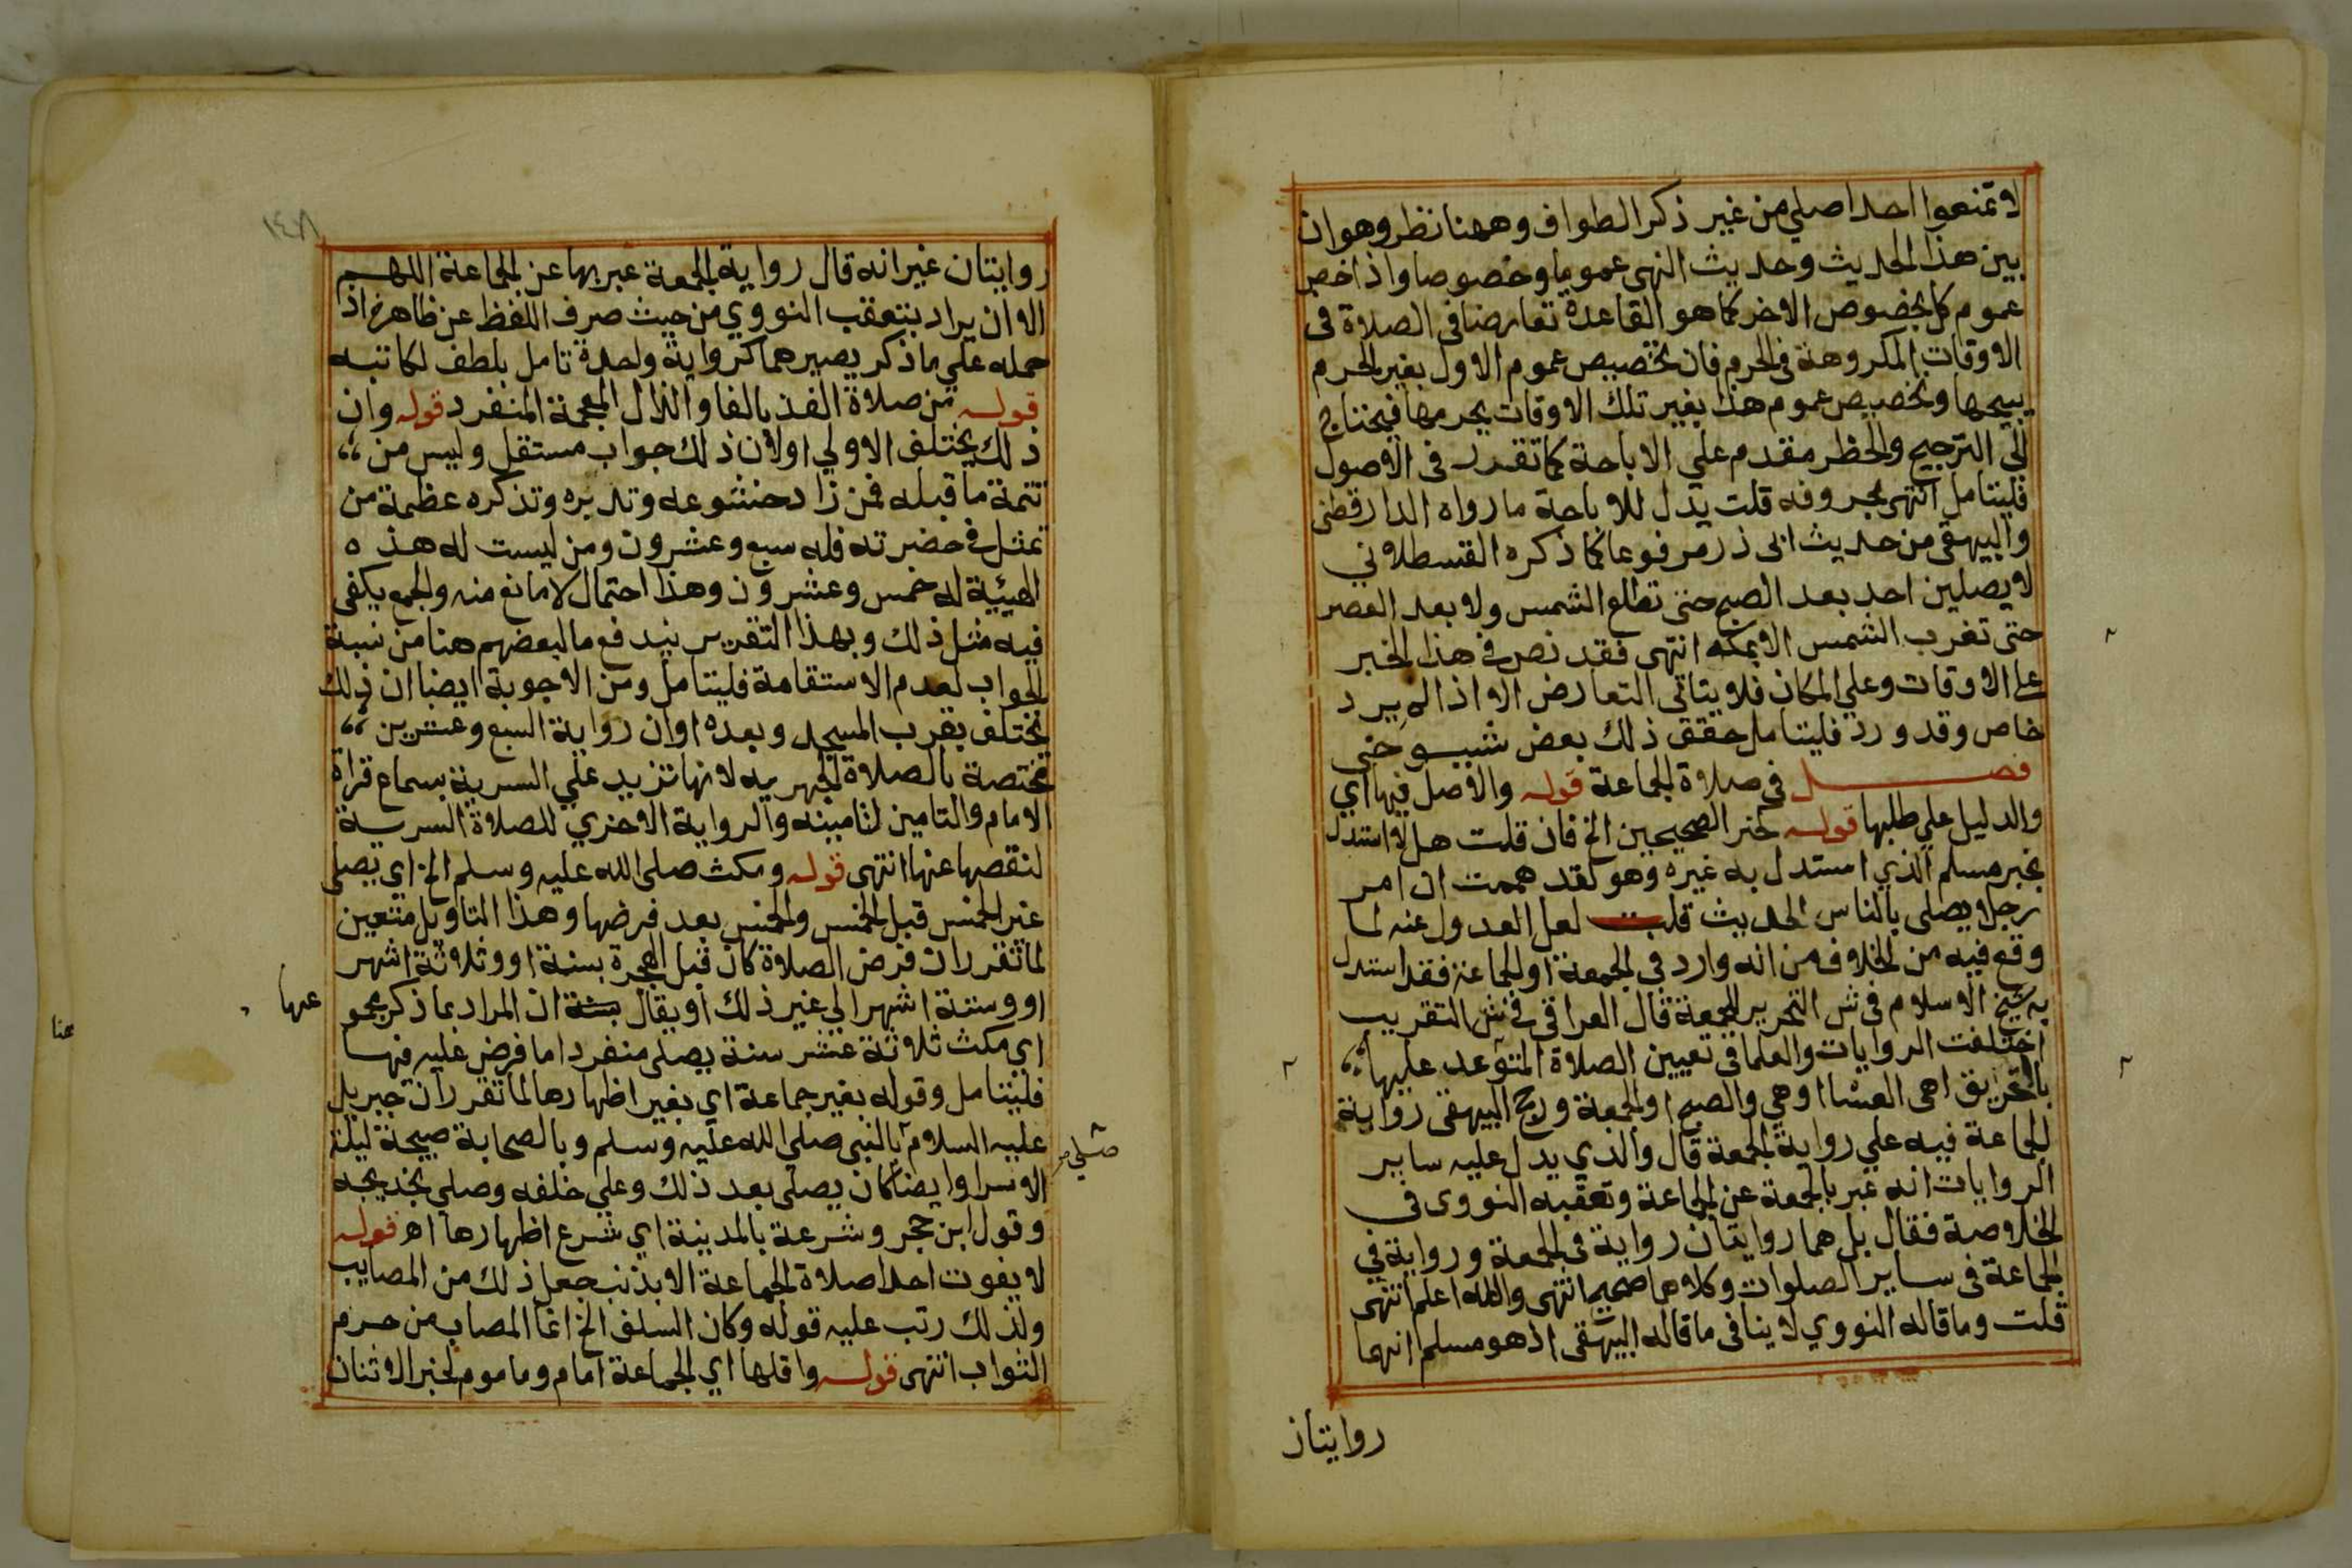 لا تمنعوا احدا صلي من غير ذكر الطواف وههنا نظر وهو ان
بين هذا الحديث وحديث النهي عموما وخصوصا واذ اخص
عموم كل بخصوص الاخر كما هو القاعدة تعارضا في الصلاة في
الاوقات المكروهة في الحرم فان تخصيص عموم الاول بغير الحرم
يبيحها وتخصيص عموم هذا بغير تلك الاوقات يحرمها فيحتاج
الي الترجيح والحظر مقدم علي الاباحة كما تقدر في الاصول
فليتامل انتهى بحروفه قلت يدل للاباحة ما رواه الدارقطني
والبيهقي من حديث ابي ذر مرفوعا كما ذكره القسطلاني
لا يصلين احد بعد الصبح حتى تطلع الشمس ولا بعد العصر
حتى تغرب الشمس الا بمكة انتهى فقد نص في هذا الخبر
على الاوقات وعلي المكان فلا يتاتى التعارض الا اذا لم يرد
خاص وقد ورد فليتامل حقق ذلك بعض شيوخي
فصل في صلاة الجماعة قوله والاصل فيها اي
والدليل علي طلبها قوله خبر الصحيحين الخ فان قلت هلا استدل
بخبر مسلم الذي استدل به غيره وهو لقد هممت ان امر
رجلا يصلي بالناس الحديث قلت لعل العدول عنه لما
وقع فيه من الخلاف من انه وارد في الجمعة او الجماعة فقد استدل
به شيخ الاسلام في ش التحرير للجمعة قال العراقي في ش التقريب
اختلفت الروايات والعلما في تعيين الصلاة المتوعد عليها
بالتحريق اهي العشا او هي والصبح او الجمعة ورجح البيهقي رواية
الجماعة فيه علي رواية الجمعة قال والذي يدل عليه ساير
الروايات انه عبر بالجمعة عن الجماعة وتعقبه النووى في
الخلاصة فقال بل هما روايتان رواية في الجمعة ورواية في
الجماعة في ساير الصلوات وكلاهما صحيح انتهى والله اعلم انتهى
قلت وما قاله النووي لا ينافي ما قاله البيهقي اذ هو مسلم انهما
روايتان
١٤٨
روايتان غير انه قال رواية الجمعة عبر بها عن الجماعة اللهم
الا ان يراد بتعقب النووي من حيث صرف اللفظ عن ظاهره اذ
حمله علي ما ذكر يصيرهما كرواية واحدة تامل بلطف لكاتبه
قوله من صلاة الفذ بالفا والذال المعجمة المنفرد قوله وان
ذلك يختلف الاولي اولان ذلك جواب مستقل وليس من
تتمة ما قبله فمن زاد خشوعه وتدبره وتذكره عظمة من
تمثل في حضرته فله سبع وعشرون ومن ليست له هذه
الهيئية له خمس وعشرون وهذا احتمال لا مانع منه والجمع يكفي
فيه مثل ذلك وبهذا التقرير يندفع ما لبعضهم هنا من نسبة
الجواب لعدم الاستقامة فليتامل ومن الاجوبة ايضا ان ذلك
تختلف بقرب المسجد وبعده او ان رواية السبع وعشرين
مختصة بالصلاة الجهريه لانها تزيد علي السرية بسماع قراة
الامام والتامين لتامينه والرواية الاخري للصلاة السرية
لنقصها عنها انتهى قوله ومكث صلى الله عليه وسلم الخ اي يصلي
غير الخمس قبل الخمس والخمس بعد فرضها وهذا التاويل متعين
لما تقرر ان فرض الصلاة كان قبل الهجرة بسنة او وثلاثة اشهر
او وستة اشهر الي غير ذلك او يقال ان المراد بما ذكر بمحو
عنها
عنا
اي مكث ثلاثة عشر سنة يصلي منفردا ما فرض عليه فيها
فليتامل وقوله بغير جماعة اي بغير اظهارها لما تقرر ان جبريل
صلي
عليه السلام بالنبي صلى الله عليه وسلم وبالصحابة صبيحة ليلة
الاسرا وايضا كان يصلي بعد ذلك وعلي خلفه وصلي بخديجه
وقول ابن حجر وشرعة بالمدينة اي شرع اظهارها اهـ قوله
لا يفوت احدا صلاة الجماعة الا بذنب جعل ذلك من المصايب
ولذلك رتب عليه قوله وكان السلف الخ انما المصاب من حرم
الثواب انتهى قوله واقلها اي الجماعة امام وماموم لخبر الاثنان